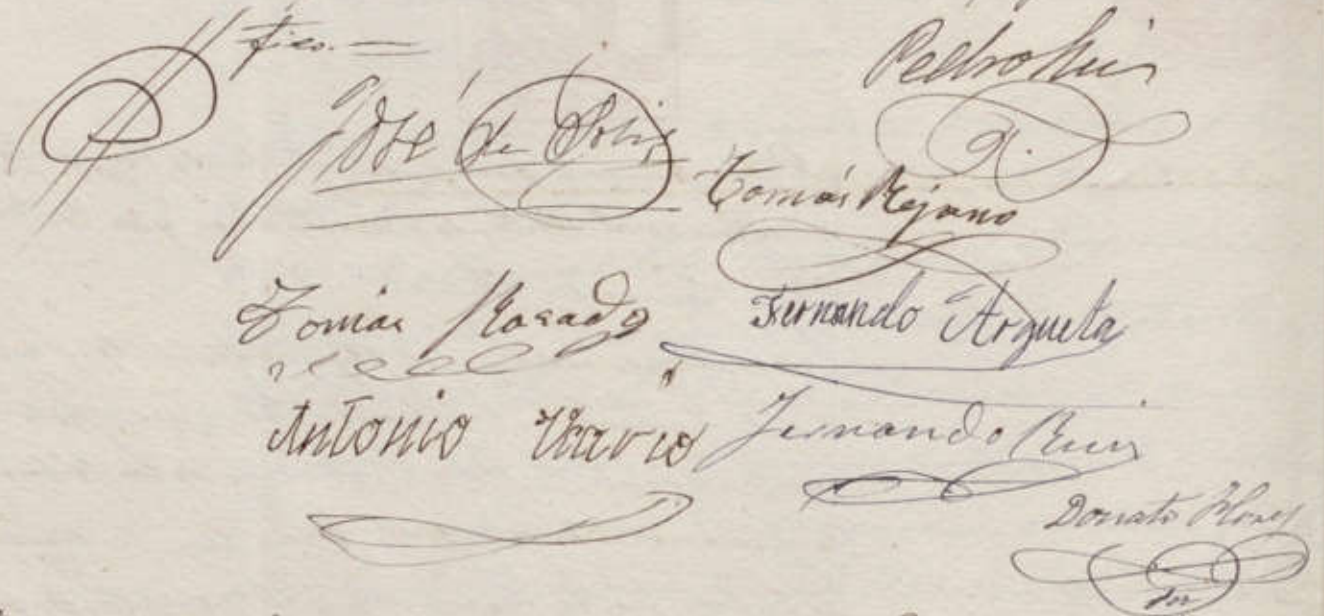 Pedro Ruiz
José de Solis
Tomás Rejano
Tomás Rosado
Fernando Argueta
Antonio
Fernando Ruiz
Donato Flores